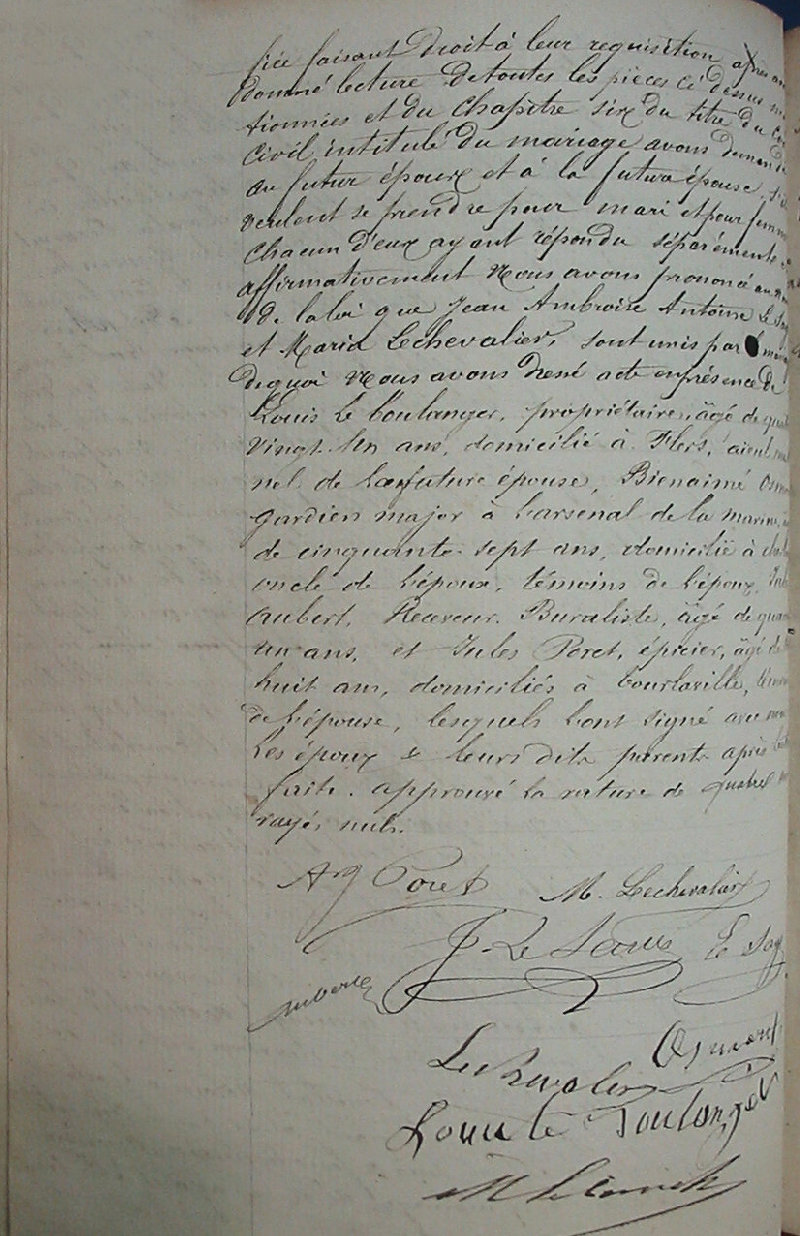 faisant droit à leur requisition après
donné lecture de toutes les pièces ci dessus
tionnées et du Chapitre six du titre du
Civil intitulé du mariage avons demandé
au futur époux et à la future épouse
veulent se prendre pour mari et pour femme
Chacun d'eux ayant répondu séparément
affirmativement Nous avons prononcé au
de la loi que Jean Ambroise Antoine Le
et Maria Lechevalier, sont unis par
de quoi Nous avons dressé acte en présence de
Louis Le Boulanger, propriétaire, âgé de
vingt un ans, domicilié à Flers,
nel de la future épouse, Bienaimé
gardien major à l'arsenal de la marine,
de cinquante-sept ans, domicilié à
oncle de l'époux, témoins de l'époux,
Aubert, Receveur Buraliste, âgé de
un ans, et Jules Poret, épicier, âgé de
huit ans, domiciliés à Tourlaville,
de l'épouse, lesquels ont signé avec
les époux & leurs dits parents après
faite. approuvé la rature de quatre
rayés nuls.
Poret M. Lechevalier
J. Le Le
Aubert
Osmont
Lechevalier
Louis le Boulanger
M